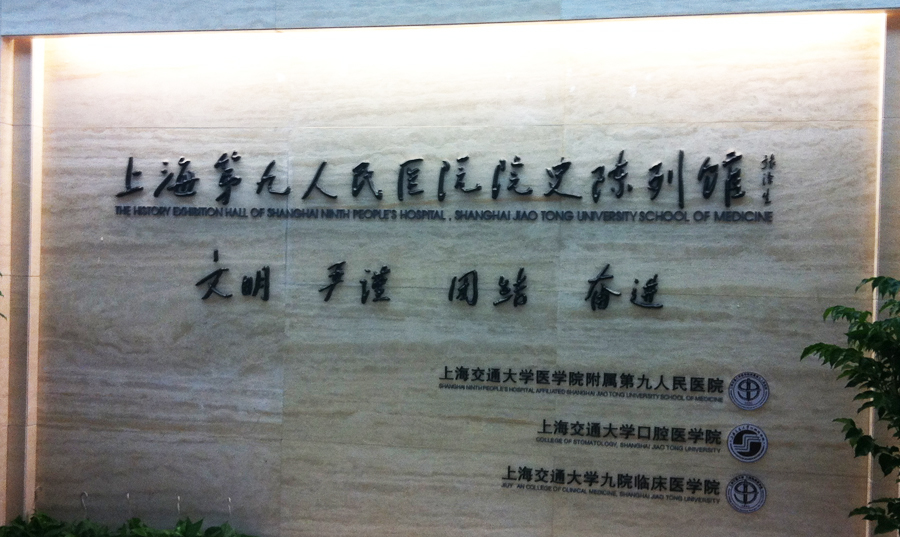 上海第九人民医院院史陈列馆
THE HISTORY EXHIBITION HALL OF SHANGHAI NINTH PEOPLE'S HOSPITAL, SHANGHAI JIAO TONG UNIVERSITY SCHOOL OF MEDICINE
文明 严谨 团结 奋进
上海交通大学医学院附属第九人民医院
SHANGHAI NINTH PEOPLE'S HOSPITAL AFFILIATED SHANGHAI JIAO TONG UNIVERSITY SCHOOL OF MEDICINE
上海交通大学口腔医学院
COLLEGE OF STOMATOLOGY, SHANGHAI JIAO TONG UNIVERSITY
上海交通大学九院临床医学院
JIUY' AN COLLEGE OF CLINICAL MEDICINE, SHANGHAI JIAO TONG UNIVERSITY